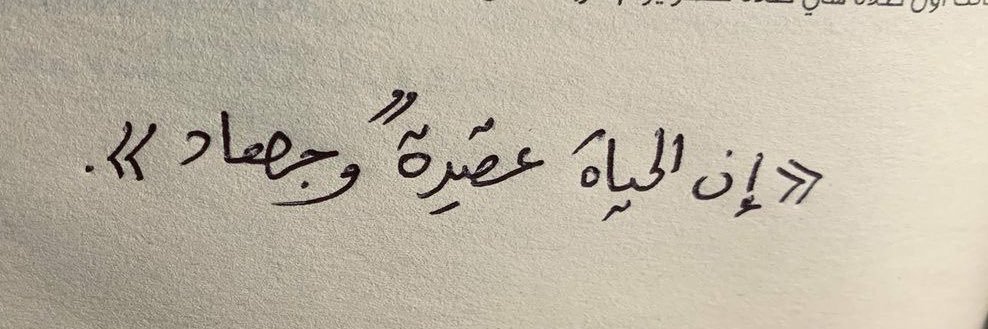 «إن الحياة عقيدةٌ وجهاد».